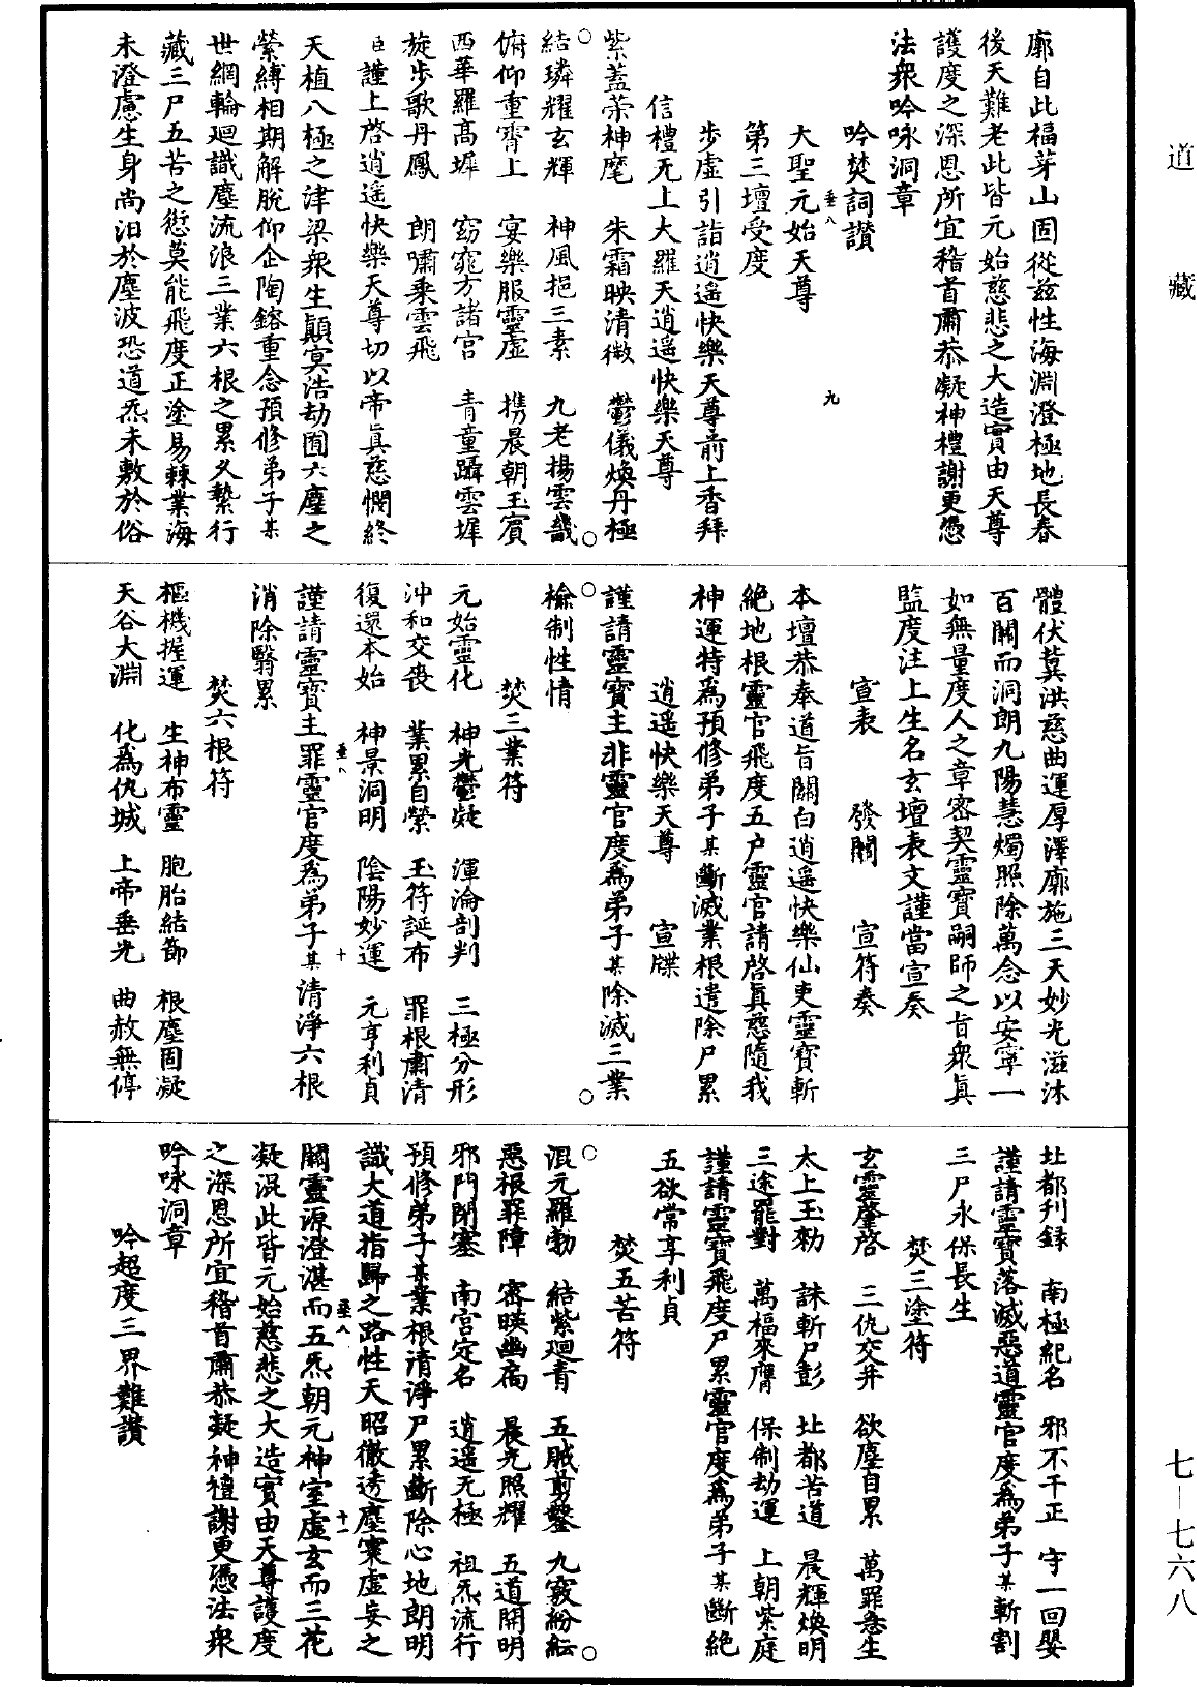 道藏
廓自此福芽山固從兹性海淵澄極地長春
後天難老此皆元始慈悲之大造實由天尊
護度之深恩所宜稽首肅恭凝神禮謝更憑
法衆吟咏洞章
吟焚詞讃
垂八
九
大聖元始天尊
第三壇受度
步虛引詣逍遥快樂天尊前上香拜
信禮无上大羅天逍遥快樂天尊
紫蓋榮神麾 朱霜映清微 鬱儀煥丹極
結璘耀玄輝 神風挹三素 九老揚雲畿
俯仰重霄上 宴樂服靈虛 携晨朝玉賓
西華羅髙墀 窈窕方諸宫 青童躡雲墀
旋步歌丹鳳 朗嘯乘雲飛
臣謹上啓逍遥快樂天尊切以帝眞慈憫終
天植八極之津梁衆生顚冥浩劫囿六塵之
縈縛相期解脫仰企陶鎔重念預修弟子某
世網輪廻識塵流浪三業六根之累久縶行
藏三尸五苦之愆莫能飛度正塗易棘業海
未澄慮生身尚汩於塵波恐道炁未敷於俗
體伏冀洪慈曲運厚澤廓施三天妙光滋沐
百關而洞朗九陽慧燭照除萬念以安寧一
如無量度人之章密契靈寶嗣師之旨衆眞
監度注上生名玄壇表文謹當宣奏
宣表 發關 宣符奏
本壇恭奉道旨關白逍遥快樂仙吏靈寶斬
絶地根靈官飛度五户靈官請啓眞慈隨我
神運特爲預修弟子某斷滅業根遣除尸累
逍遥快樂天尊 宣牒
謹請靈寶主非靈官度爲弟子某除滅三業
檢制性情
焚三業符
元始靈化 神光鬱凝 渾淪剖判 三極分形
沖和交喪 業累自縈 玉符誕布 罪根肅清
復還本始 神景洞明 陰陽妙運 元亨利貞
垂八
十
謹請靈寶主罪靈官度爲弟子某清淨六根
消除翳累
焚六根符
樞機握運 生神布靈 胞胎結節 根塵固凝
天谷大淵 化爲仇城 上帝垂光 曲赦無停
北都刊録 南極紀名 邪不干正 守一回嬰
謹請靈寶落滅惡道靈官度爲弟子某斬割
三尸永保長生
焚三塗符
玄靈肇啓 三仇交并 欲塵自累 萬罪悉生
太上玉勑 誅斬尸彭 北都苦道 晨輝煥明
三途罷對 萬福來膺 保制劫運 上朝紫庭
謹請靈寶飛度尸累靈官度爲弟子某斷絶
五欲常享利貞
焚五苦符
混元羅勃 結紫廻青 五賊剪鑿 九竅紛紜
惡根罪障 密暎幽扃 晨光照耀 五道開明
邪門閉塞 南宫定名 逍遥无極 祖炁流行
預修弟子某業根清淨尸累斷除心地朗明
識大道指歸之路性天昭徹透塵寰虛妄之
垂八
十一
關靈源澄湛而五炁朝元神室虛玄而三花
凝混此皆元始慈悲之大造實由天尊護度
之深恩所宜稽首肅恭凝神禮謝更憑法衆
吟咏洞章
吟超度三界難讃
七—七六八